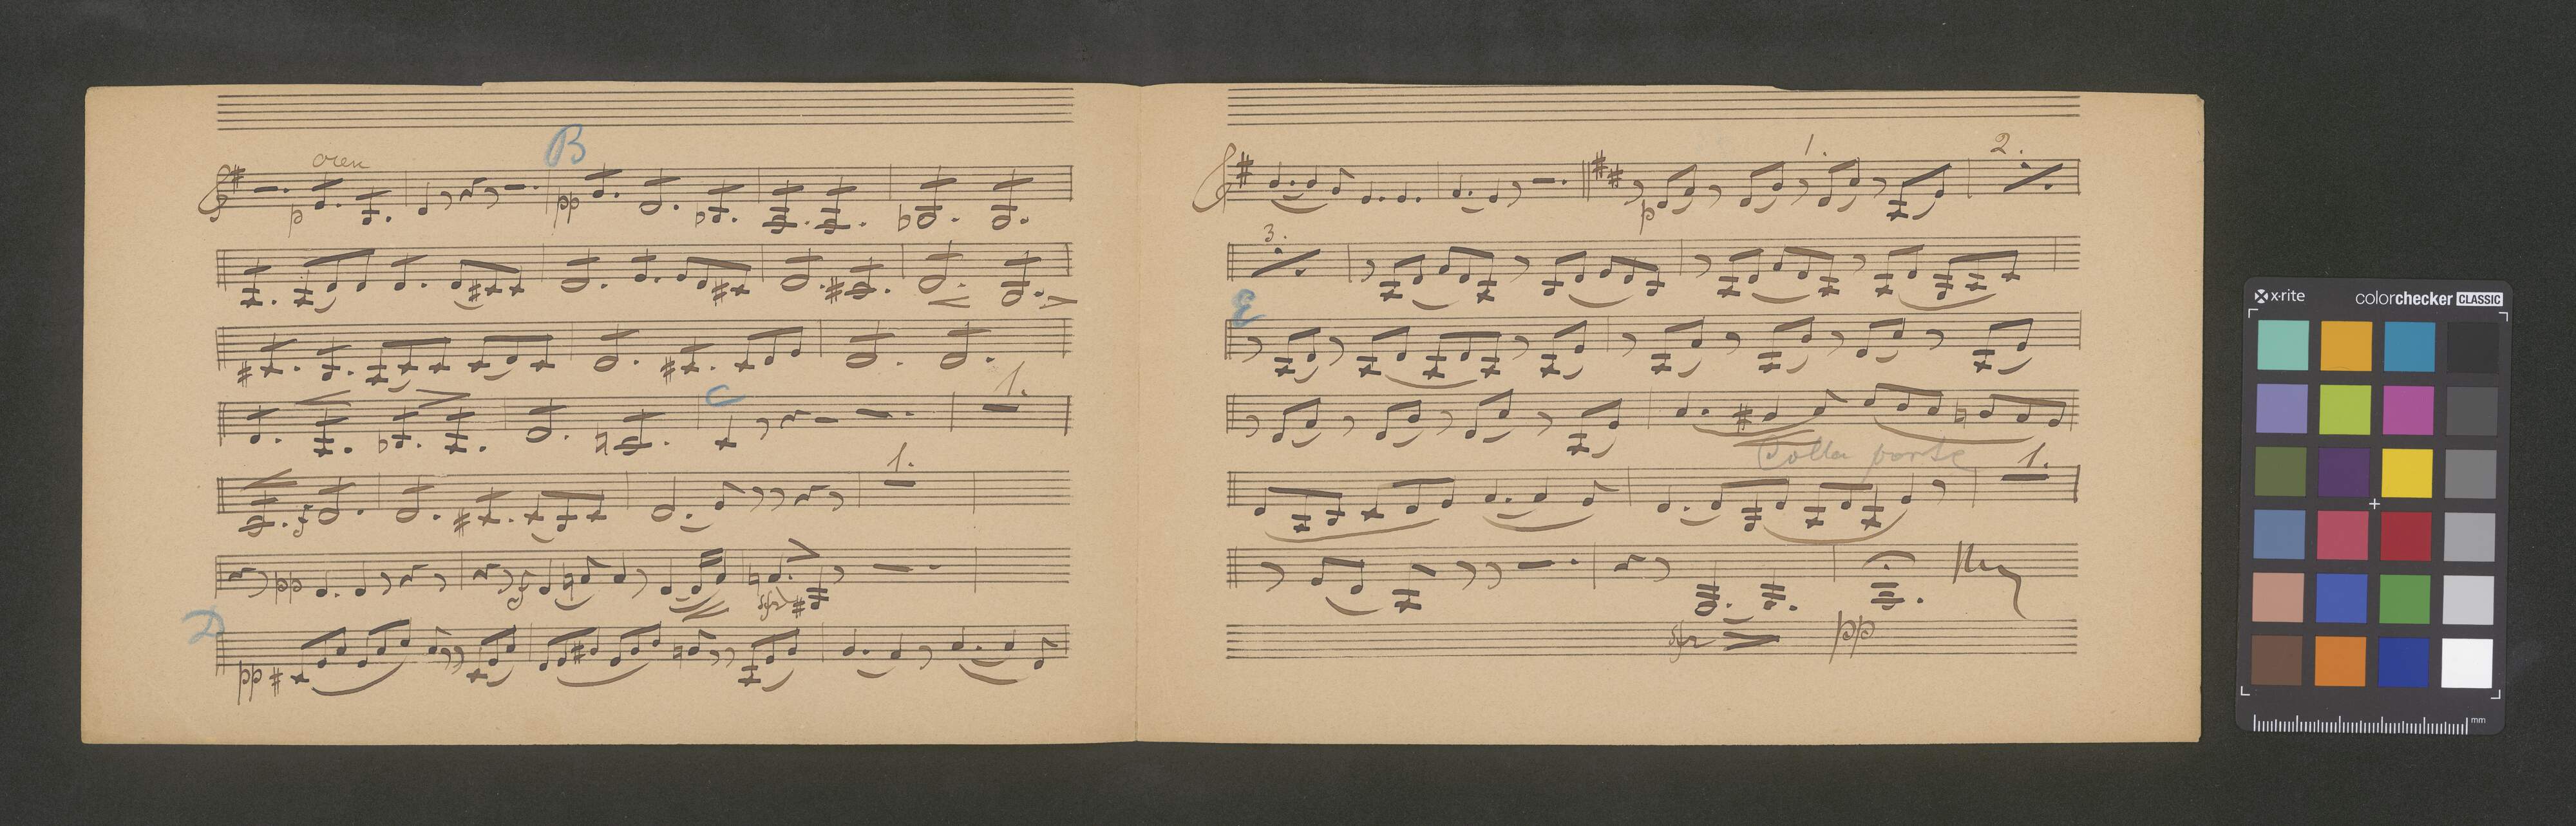 B
cren
p
pp
C
1.
f
1.
pp
f
sfz
D
pp
1.
2.
p
3.
E
Colla parte
1.
sfz
pp
x-rite
colorchecker CLASSIC
mm